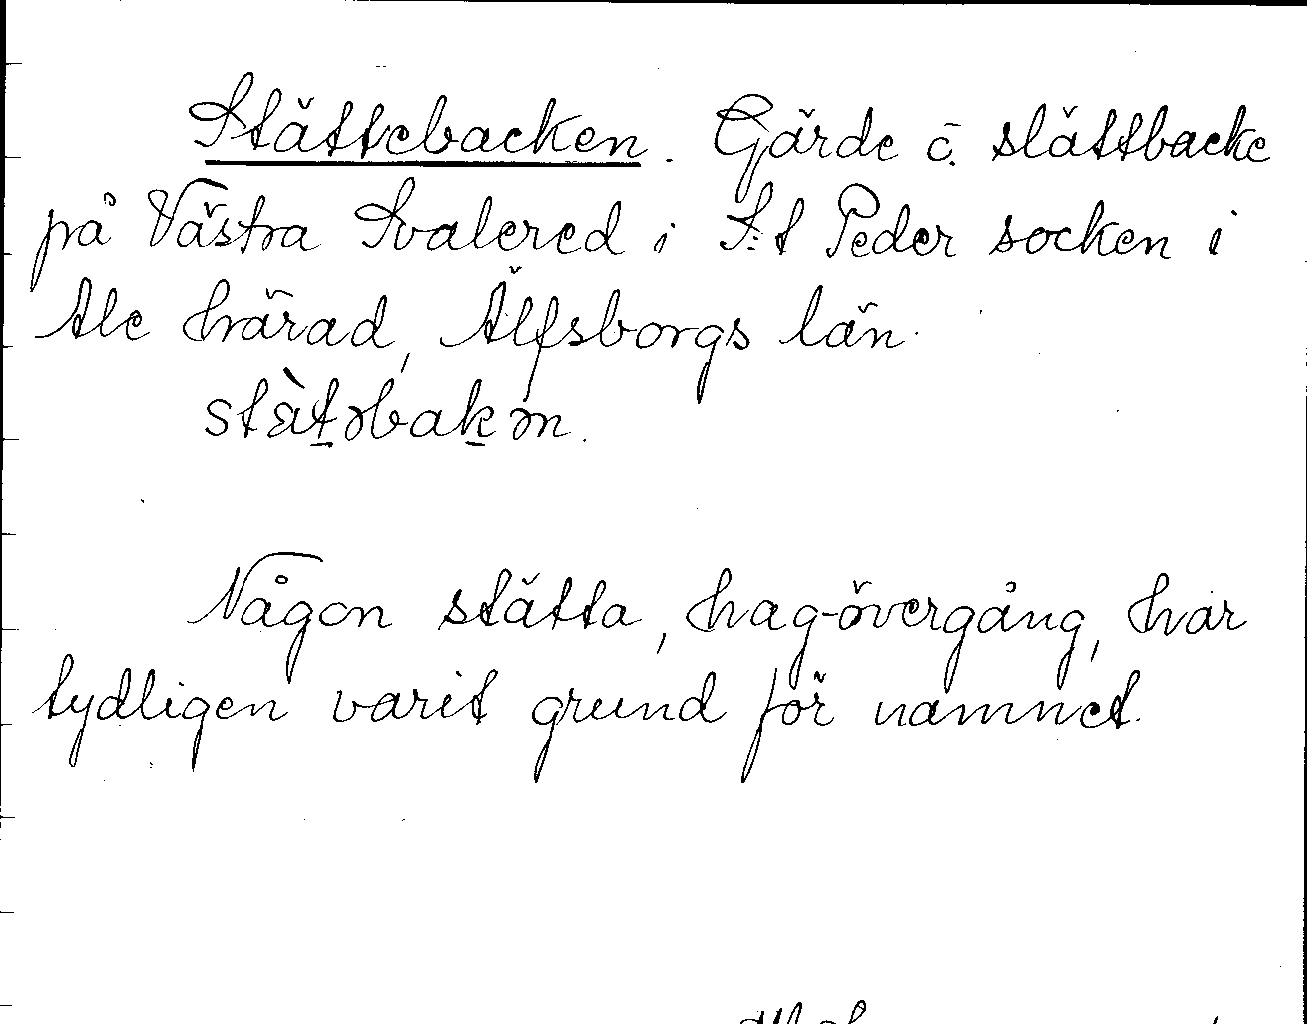 Stättebacken. Gärde o. slättbacke
på Västra Svalered i S:t Peder socken i
Ale härad, Älfsborgs län.
stàtəbakən.
Någon stätta, hag-övergång, har
tydligen varit grund för namnet.